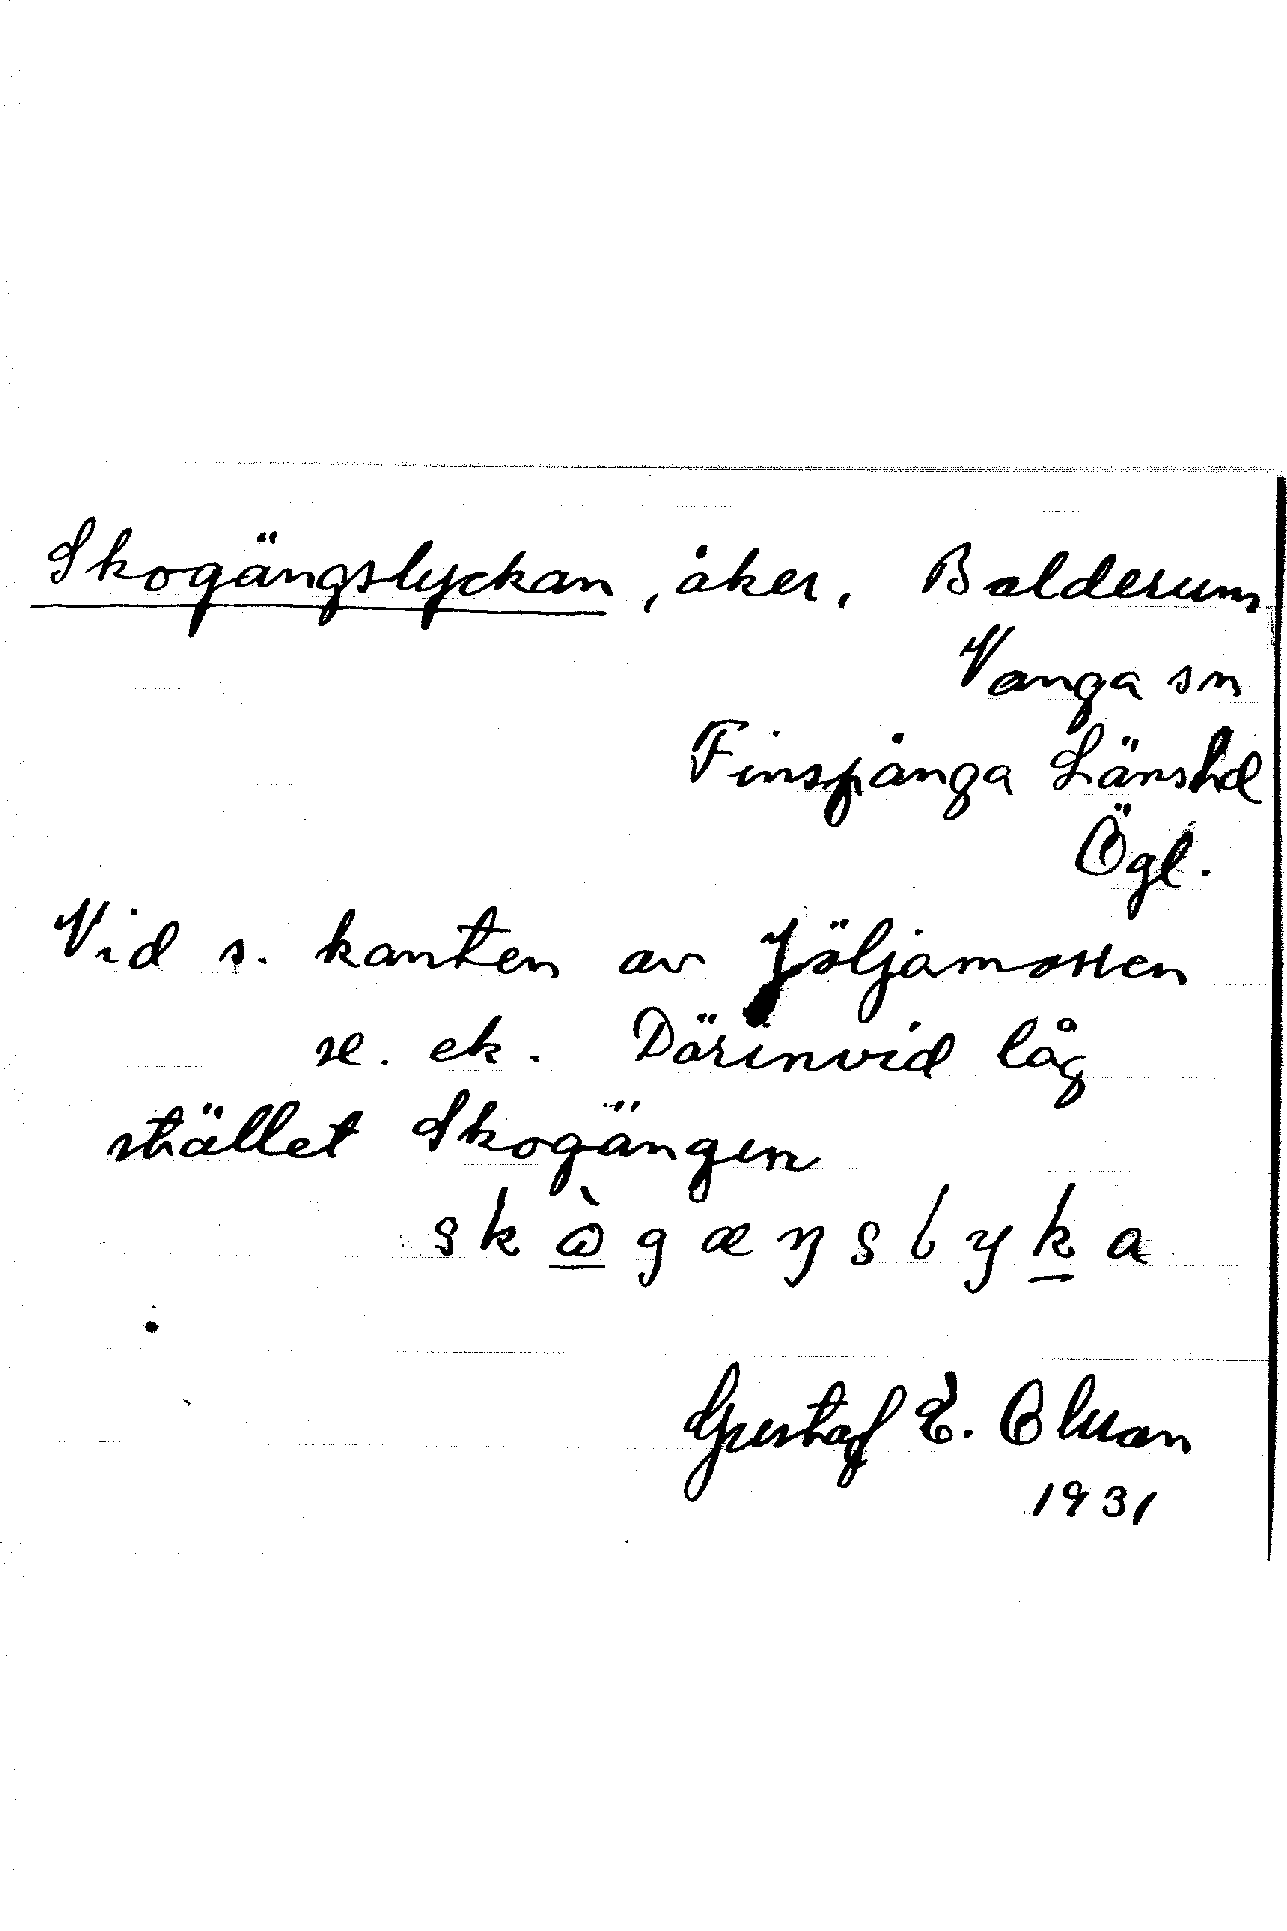 Skogängslyckan, åker, Bolderum
Vånga sn
Finspånga Länshd
Ögl.
Vid s. kanten av Jöljamossen
se. ek. Därinvid låg
stället Skogängen
skὼgæŋslyka
Gustaf E. Olsson
1931